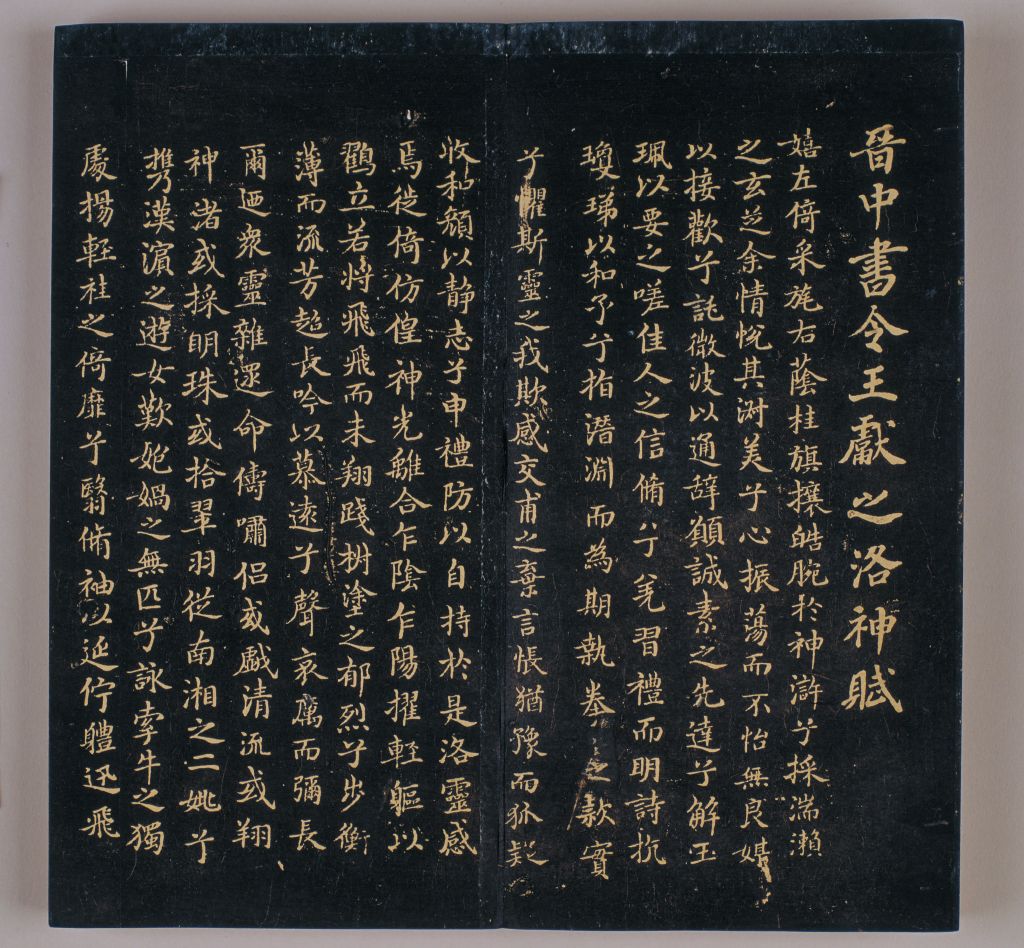 晉中書令王獻之洛神賦
嬉左倚采旄右蔭桂旗攘皓腕於神滸兮採湍瀨
之玄芝余情悅其淑美兮心振蕩而不怡無良媒
以接歡兮託微波以通辭願誠素之先達兮解玉
珮以要之嗟佳人之信脩兮羌習禮而明詩抗
瓊珶以和予兮指潛淵而為期執眷之款實
兮懼斯靈之我欺感交甫之棄言悵猶豫而狐疑
收和顏以靜志兮申禮防以自持於是洛靈感
焉徙倚仿偟神光離合乍陰乍陽擢輕軀以
鶴立若將飛飛而未翔踐椒塗之郁烈兮步衡
薄而流芳超長吟以慕遠兮聲哀厲而彌長
爾迺衆靈雜遝命儔嘯侶或戲清流或翔
神渚或採明珠或拾翠羽從南湘之二姚兮
攜漢濱之遊女歎妑媧之無匹兮詠牽牛之獨
處揚輕袿之倚靡兮翳脩袖以延佇軆迅飛